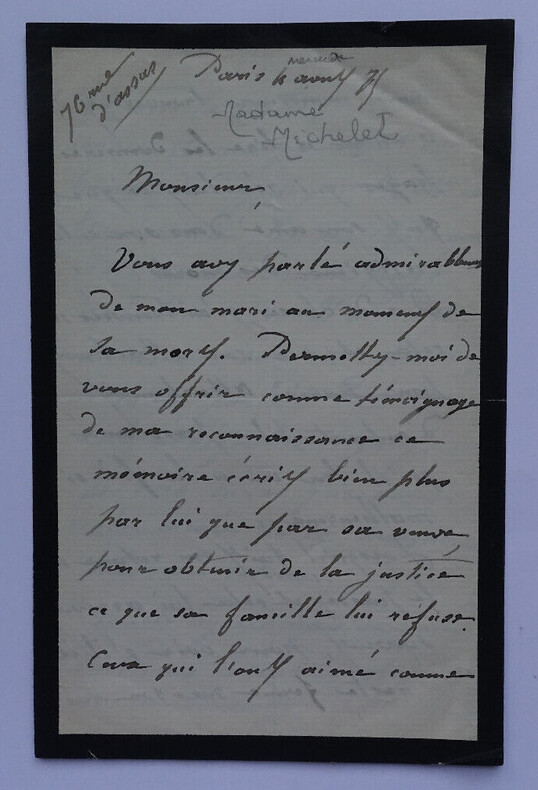 76 rue
d'assas
mercredi
Paris 4 aout 75
Madame
Michelet
Monsieur,
Vous avez parlé admirablement
de mon mari au moment de
sa mort. Permettez-moi de
vous offrir comme témoignage
de ma reconnaissance ce
mémoire écrit bien plus
par lui que par sa veuve,
pour obtenir de la justice
ce que sa famille lui refuse.
Ceux qui l'ont aimé comme